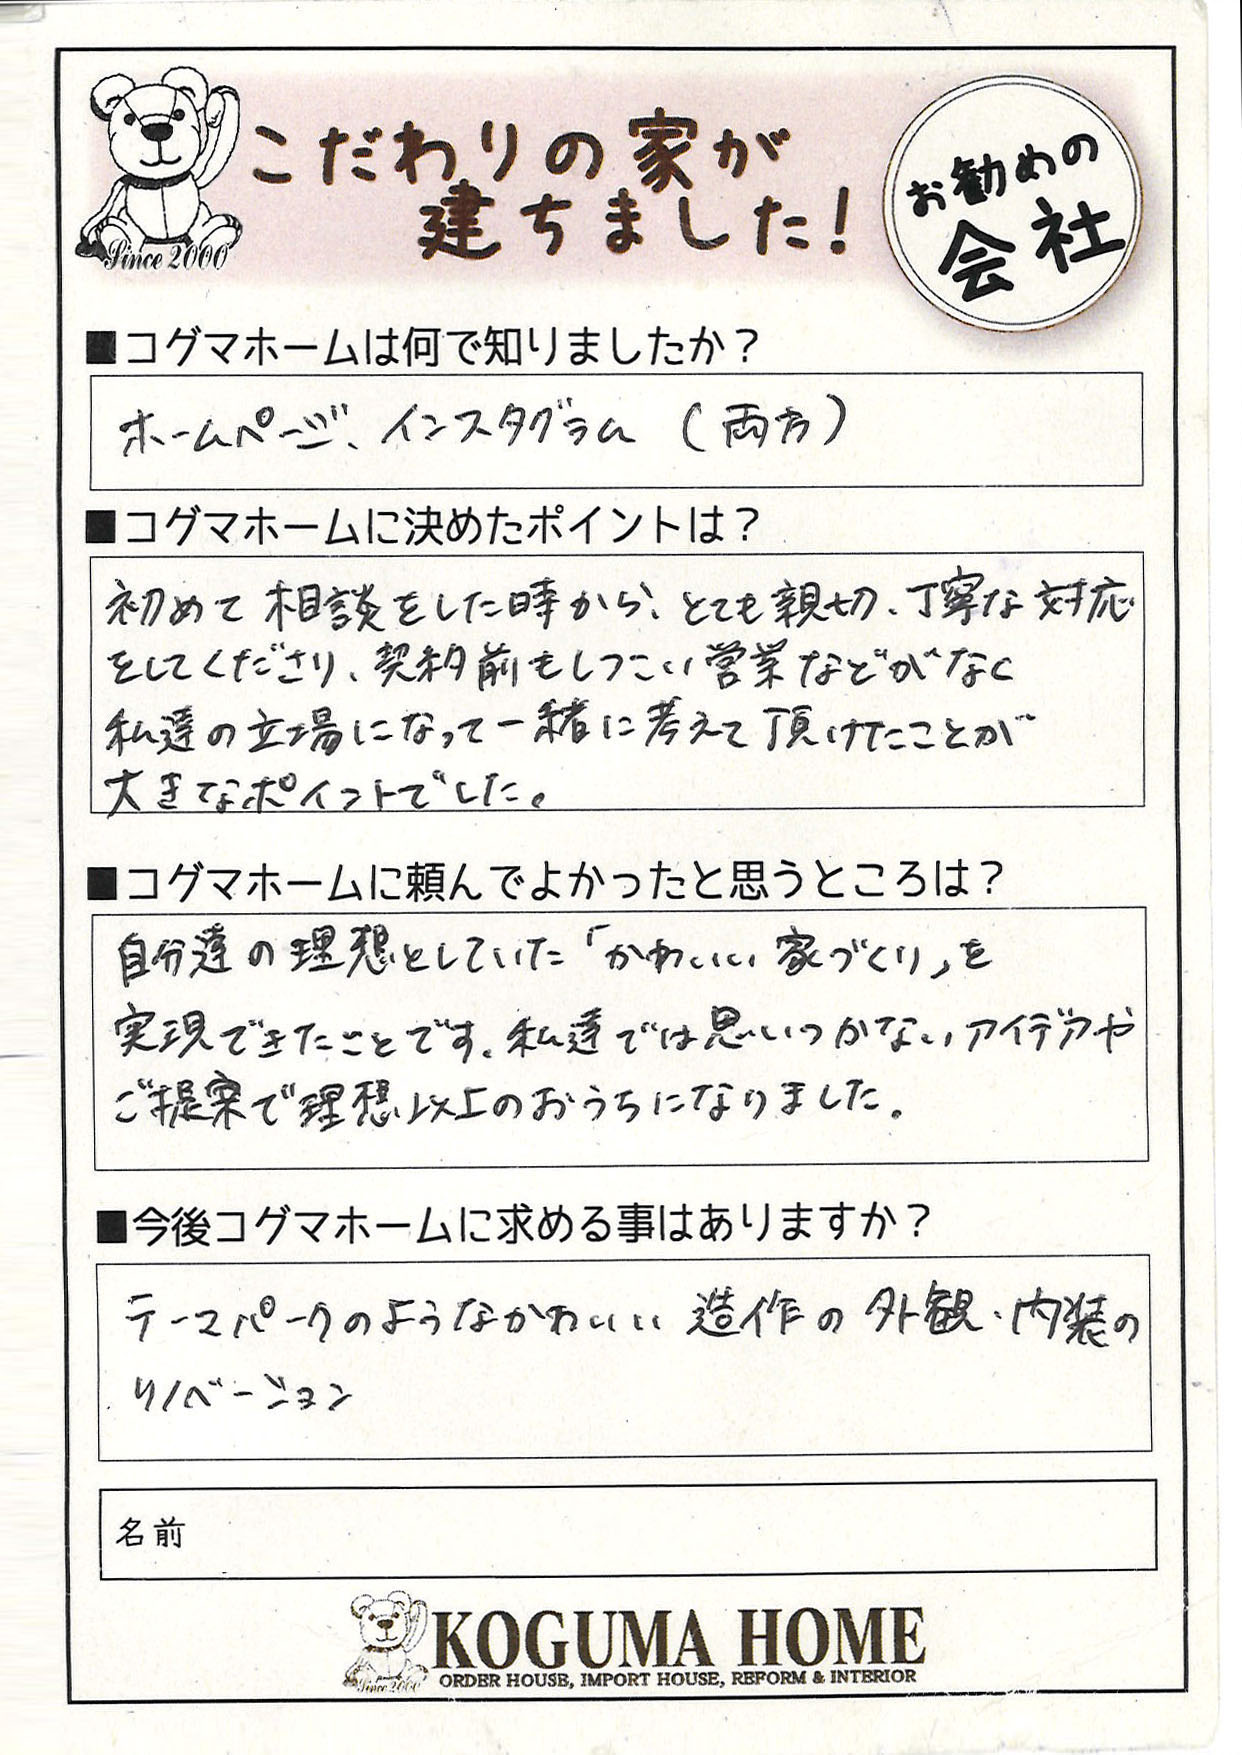 こだわりの家が
建ちました!
お勧めの
会社
Since 2000
■コグマホームは何で知りましたか？
ホームページ、インスタグラム（両方）
■コグマホームに決めたポイントは？
初めて相談をした時から、とても親切、丁寧な対応
をしてくださり、契約前もしつこい営業などがなく
私達の立場になって一緒に考えて頂けたことが
大きなポイントでした。
■コグマホームに頼んでよかったと思うところは？
自分達の理想としていた「かわいい家づくり」を
実現できたことです。私達では思いつかないアイデアや
ご提案で理想以上のおうちになりました。
■今後コグマホームに求める事はありますか？
テーマパークのようなかわいい造作の外観・内装の
リノベーション
名前
Since 2000
KOGUMA HOME
ORDER HOUSE, IMPORT HOUSE, REFORM & INTERIOR